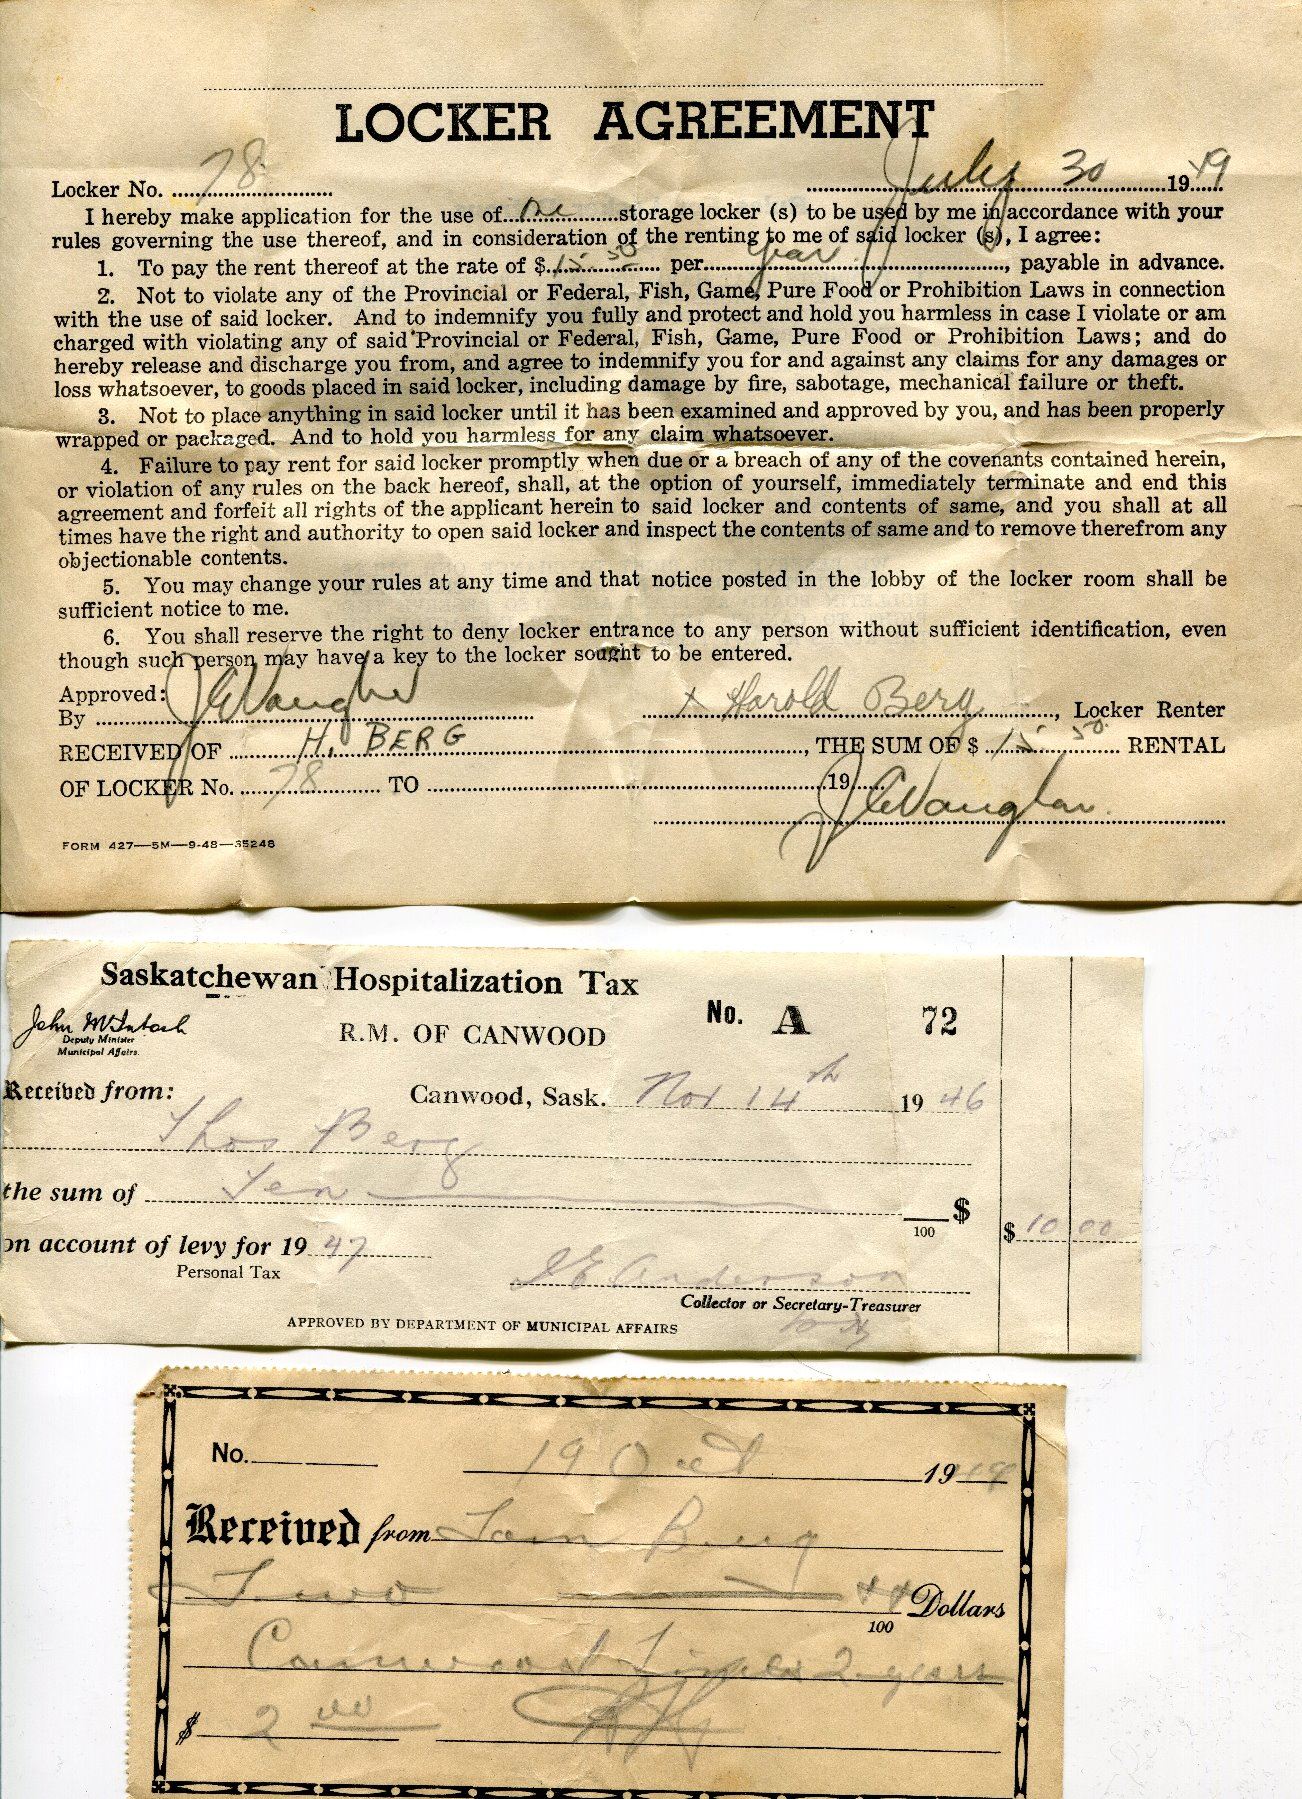 LOCKER AGREEMENT
Locker No. 78 July 30 1949
I hereby make application for the use of one storage locker (s) to be used by me in accordance with your
rules governing the use thereof, and in consideration of the renting to me of said locker (s), I agree:
1. To pay the rent thereof at the rate of $ 15 50 per year, payable in advance.
2. Not to violate any of the Provincial or Federal, Fish, Game, Pure Food or Prohibition Laws in connection
with the use of said locker. And to indemnify you fully and protect and hold you harmless in case I violate or am
charged with violating any of said Provincial or Federal, Fish, Game, Pure Food or Prohibition Laws; and do
hereby release and discharge you from, and agree to indemnify you for and against any claims for any damages or
loss whatsoever, to goods placed in said locker, including damage by fire, sabotage, mechanical failure or theft.
3. Not to place anything in said locker until it has been examined and approved by you, and has been properly
wrapped or packaged. And to hold you harmless for any claim whatsoever.
4. Failure to pay rent for said locker promptly when due or a breach of any of the covenants contained herein,
or violation of any rules on the back hereof, shall, at the option of yourself, immediately terminate and end this
agreement and forfeit all rights of the applicant herein to said locker and contents of same, and you shall at all
times have the right and authority to open said locker and inspect the contents of same and to remove therefrom any
objectionable contents.
5. You may change your rules at any time and that notice posted in the lobby of the locker room shall be
sufficient notice to me.
6. You shall reserve the right to deny locker entrance to any person without sufficient identification, even
though such person may have a key to the locker sought to be entered.
Approved:
By J C Vaughan x Harold Berg, Locker Renter
RECEIVED OF H. BERG, THE SUM OF $ 15 50 RENTAL
OF LOCKER No. 78 TO 19
J C Vaughan
FORM 427—5M—9-48—35248
Saskatchewan Hospitalization Tax
John McIntosh
Deputy Minister
Municipal Affairs.
R.M. OF CANWOOD No. A 72
Received from: Canwood, Sask. Nov 14th 1946
Thos Berg
the sum of Ten /100 $ $ 10 00
on account of levy for 19 47
Personal Tax
Anderson
Collector or Secretary-Treasurer
APPROVED BY DEPARTMENT OF MUNICIPAL AFFAIRS
No. 19 Oct 19
Received from Tom Berg
Two /100 Dollars
Canwood 2 years
$ 2 00